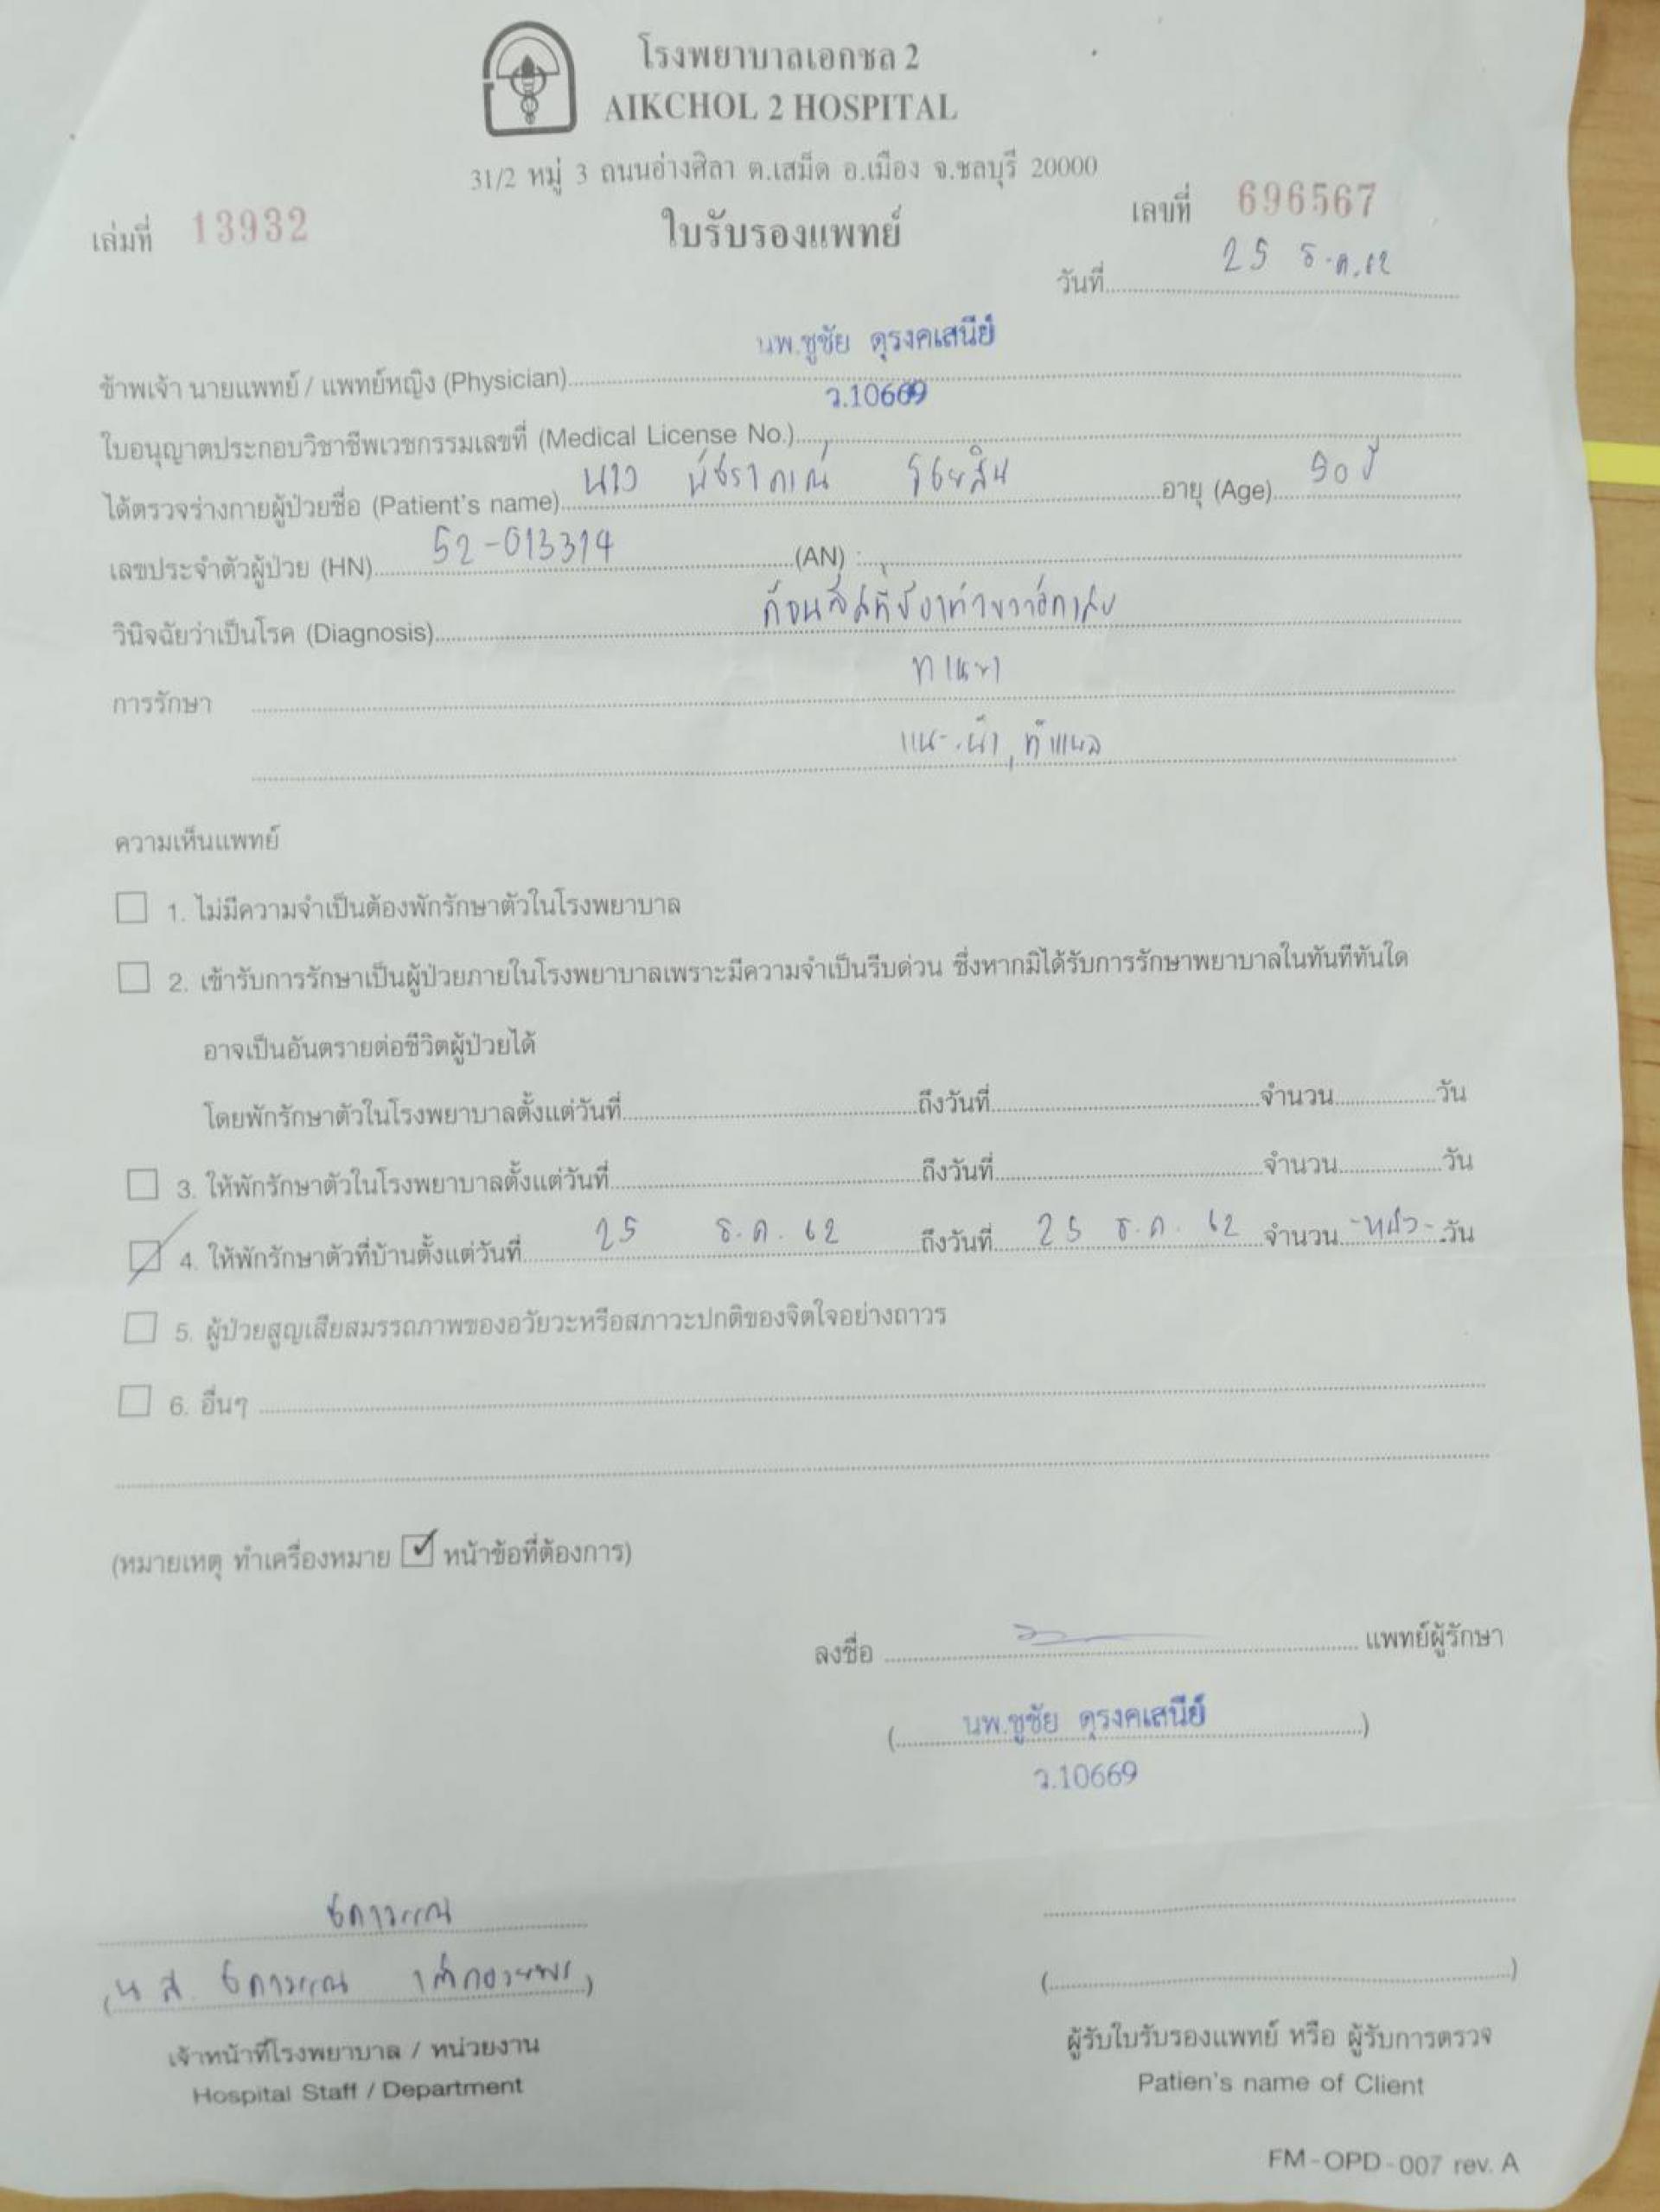 โรงพยาบาลเอกชล 2
AIKCHOL 2 HOSPITAL
31/2 หมู่ 3 ถนนอ่างศิลา ต.เสม็ด อ.เมือง จ.ชลบุรี 20000
เล่มที่ 13932 ใบรับรองแพทย์ เลขที่ 696567
วันที่ 25 ธ.ค.62
นพ.ชูชัย ดุรงคเสนีย์
ข้าพเจ้า นายแพทย์ / แพทย์หญิง (Physician)
ว.10669
ใบอนุญาตประกอบวิชาชีพเวชกรรมเลขที่ (Medical License No.)
ได้ตรวจร่างกายผู้ป่วยชื่อ (Patient's name) นาง พัชราภรณ์ อายุ (Age) 30 ปี
เลขประจำตัวผู้ป่วย (HN) 52-013314 (AN) :
วินิจฉัยว่าเป็นโรค (Diagnosis)
การรักษา
แนะนำ, ทำแผล
ความเห็นแพทย์
1. ไม่มีความจำเป็นต้องพักรักษาตัวในโรงพยาบาล
2. เข้ารับการรักษาเป็นผู้ป่วยภายในโรงพยาบาลเพราะมีความจำเป็นรีบด่วน ซึ่งหากมิได้รับการรักษาพยาบาลในทันทีทันใด
อาจเป็นอันตรายต่อชีวิตผู้ป่วยได้
โดยพักรักษาตัวในโรงพยาบาลตั้งแต่วันที่ ถึงวันที่ จำนวน วัน
3. ให้พักรักษาตัวในโรงพยาบาลตั้งแต่วันที่ ถึงวันที่ จำนวน วัน
4. ให้พักรักษาตัวที่บ้านตั้งแต่วันที่ 25 ธ.ค. 62 ถึงวันที่ 25 ธ.ค. 62 จำนวน -หนึ่ง- วัน
5. ผู้ป่วยสูญเสียสมรรถภาพของอวัยวะหรือสภาวะปกติของจิตใจอย่างถาวร
6. อื่นๆ
(หมายเหตุ ทำเครื่องหมาย ☑ หน้าข้อที่ต้องการ)
ลงชื่อ แพทย์ผู้รักษา
( นพ.ชูชัย ดุรงคเสนีย์ )
ว.10669
(น.ส. )
( )
เจ้าหน้าที่โรงพยาบาล / หน่วยงาน
Hospital Staff / Department
ผู้รับใบรับรองแพทย์ หรือ ผู้รับการตรวจ
Patien's name of Client
FM-OPD-007 rev. A